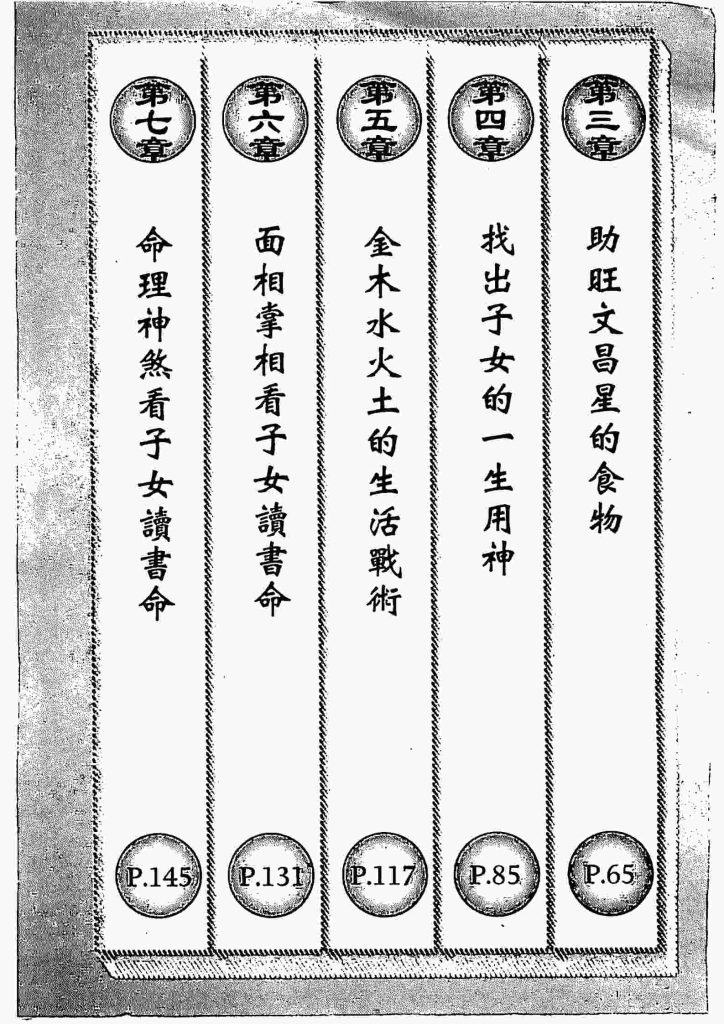 第三章
助旺文昌星的食物
P.65
第四章
找出子女的一生用神
P.85
第五章
金木水火土的生活戰術
P.117
第六章
面相掌相看子女讀書命
P.131
第七章
命理神煞看子女讀書命
P.145